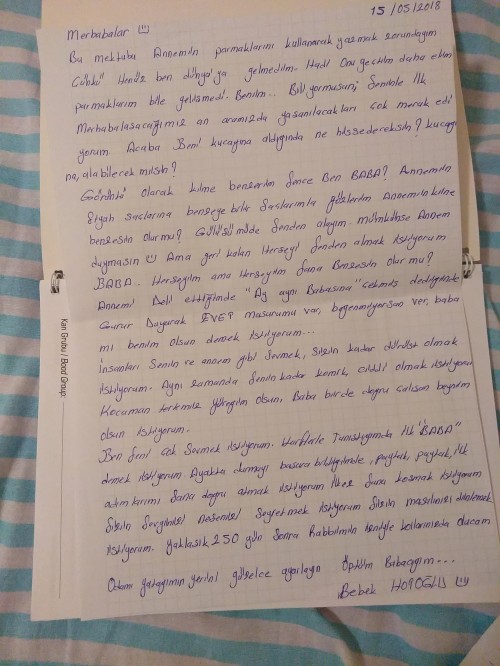 15/05/2018
Merhabalar
Bu mektuba Annemin parmaklarını kullanarak yazmak zorundayım
Çünkü Henüz ben dünya'ya gelmedim. Hadi Onu geçtim daha elim
parmaklarım bile gelişmedi. Benim.. Biliyormusun; Seninle İlk
Merhabalaşacağımız an aramızda yaşanılacakları çok merak edi
yorum. Acaba Beni kucağına aldığında ne hissedereksin? kucağı
na, alabilecek misin?
Görüntü olarak kime benzerim Sence Ben BABA? Annemin
Siyah saclarına benzeye bilir Saclarımla gözlerim Annemin kine
benzesin olur mu? Gülüşümüde Senden alayım. Mümkünse Annem
duymasın Ama geri kalan Herşeyi Senden almak istiyorum
BABA.. Herşeyim ama Herşeyim Sana Benzesin Olur mu?
Annemi Deli ettiğimde "Ay aynı Babasına" çekmiş dediğinde
Gurur Duyarak EVET Masurumu var, beğenmiyorsan ver, baba
mı benim olsun demek istiyorum...
İnsanları Senin ve annem gibi Sevmek, Sizin kadar dürüst olmak
istiyorum. Aynı zamanda Senin kadar komik, ciddi olmak istiyorum
Kocaman tertemiz yüreğim olsun, Baba birde doğru çalışan beynim
olsun istiyorum.
Ben Seni çok Sevmek istiyorum. Harflerle Tanıştığımda ilk "BABA"
demek istiyorum Ayakta durmayı başara bildiğimde, paytak, paytak, ilk
adımlarımı Sana doğru atmak istiyorum İlkez Sana kızmak istiyorum
Sizin Sevginizi neşenizi Seyretmek istiyorum Sizin masalınızı dinlemek
istiyorum. Yaklaşık 250 gün Sonra Rabbimin izniyle kollarınızda olucam
Odamı yatağımın yerini güzelce ayarlayın Öptüm Babacığım...
Bebek
Kan Grubu / Blood Group: